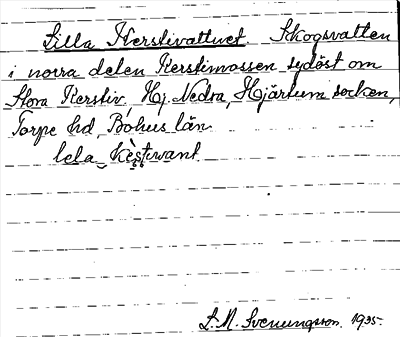 Lilla Kerstivattnet Skogsvatten
i norra delen Kerstimossen sydöst om
Stora Kerstiv, Hj. Nedra, Hjärtum socken,
Torpe hd, Bohus län.
lela
L. M. Svenungsson. 1935.